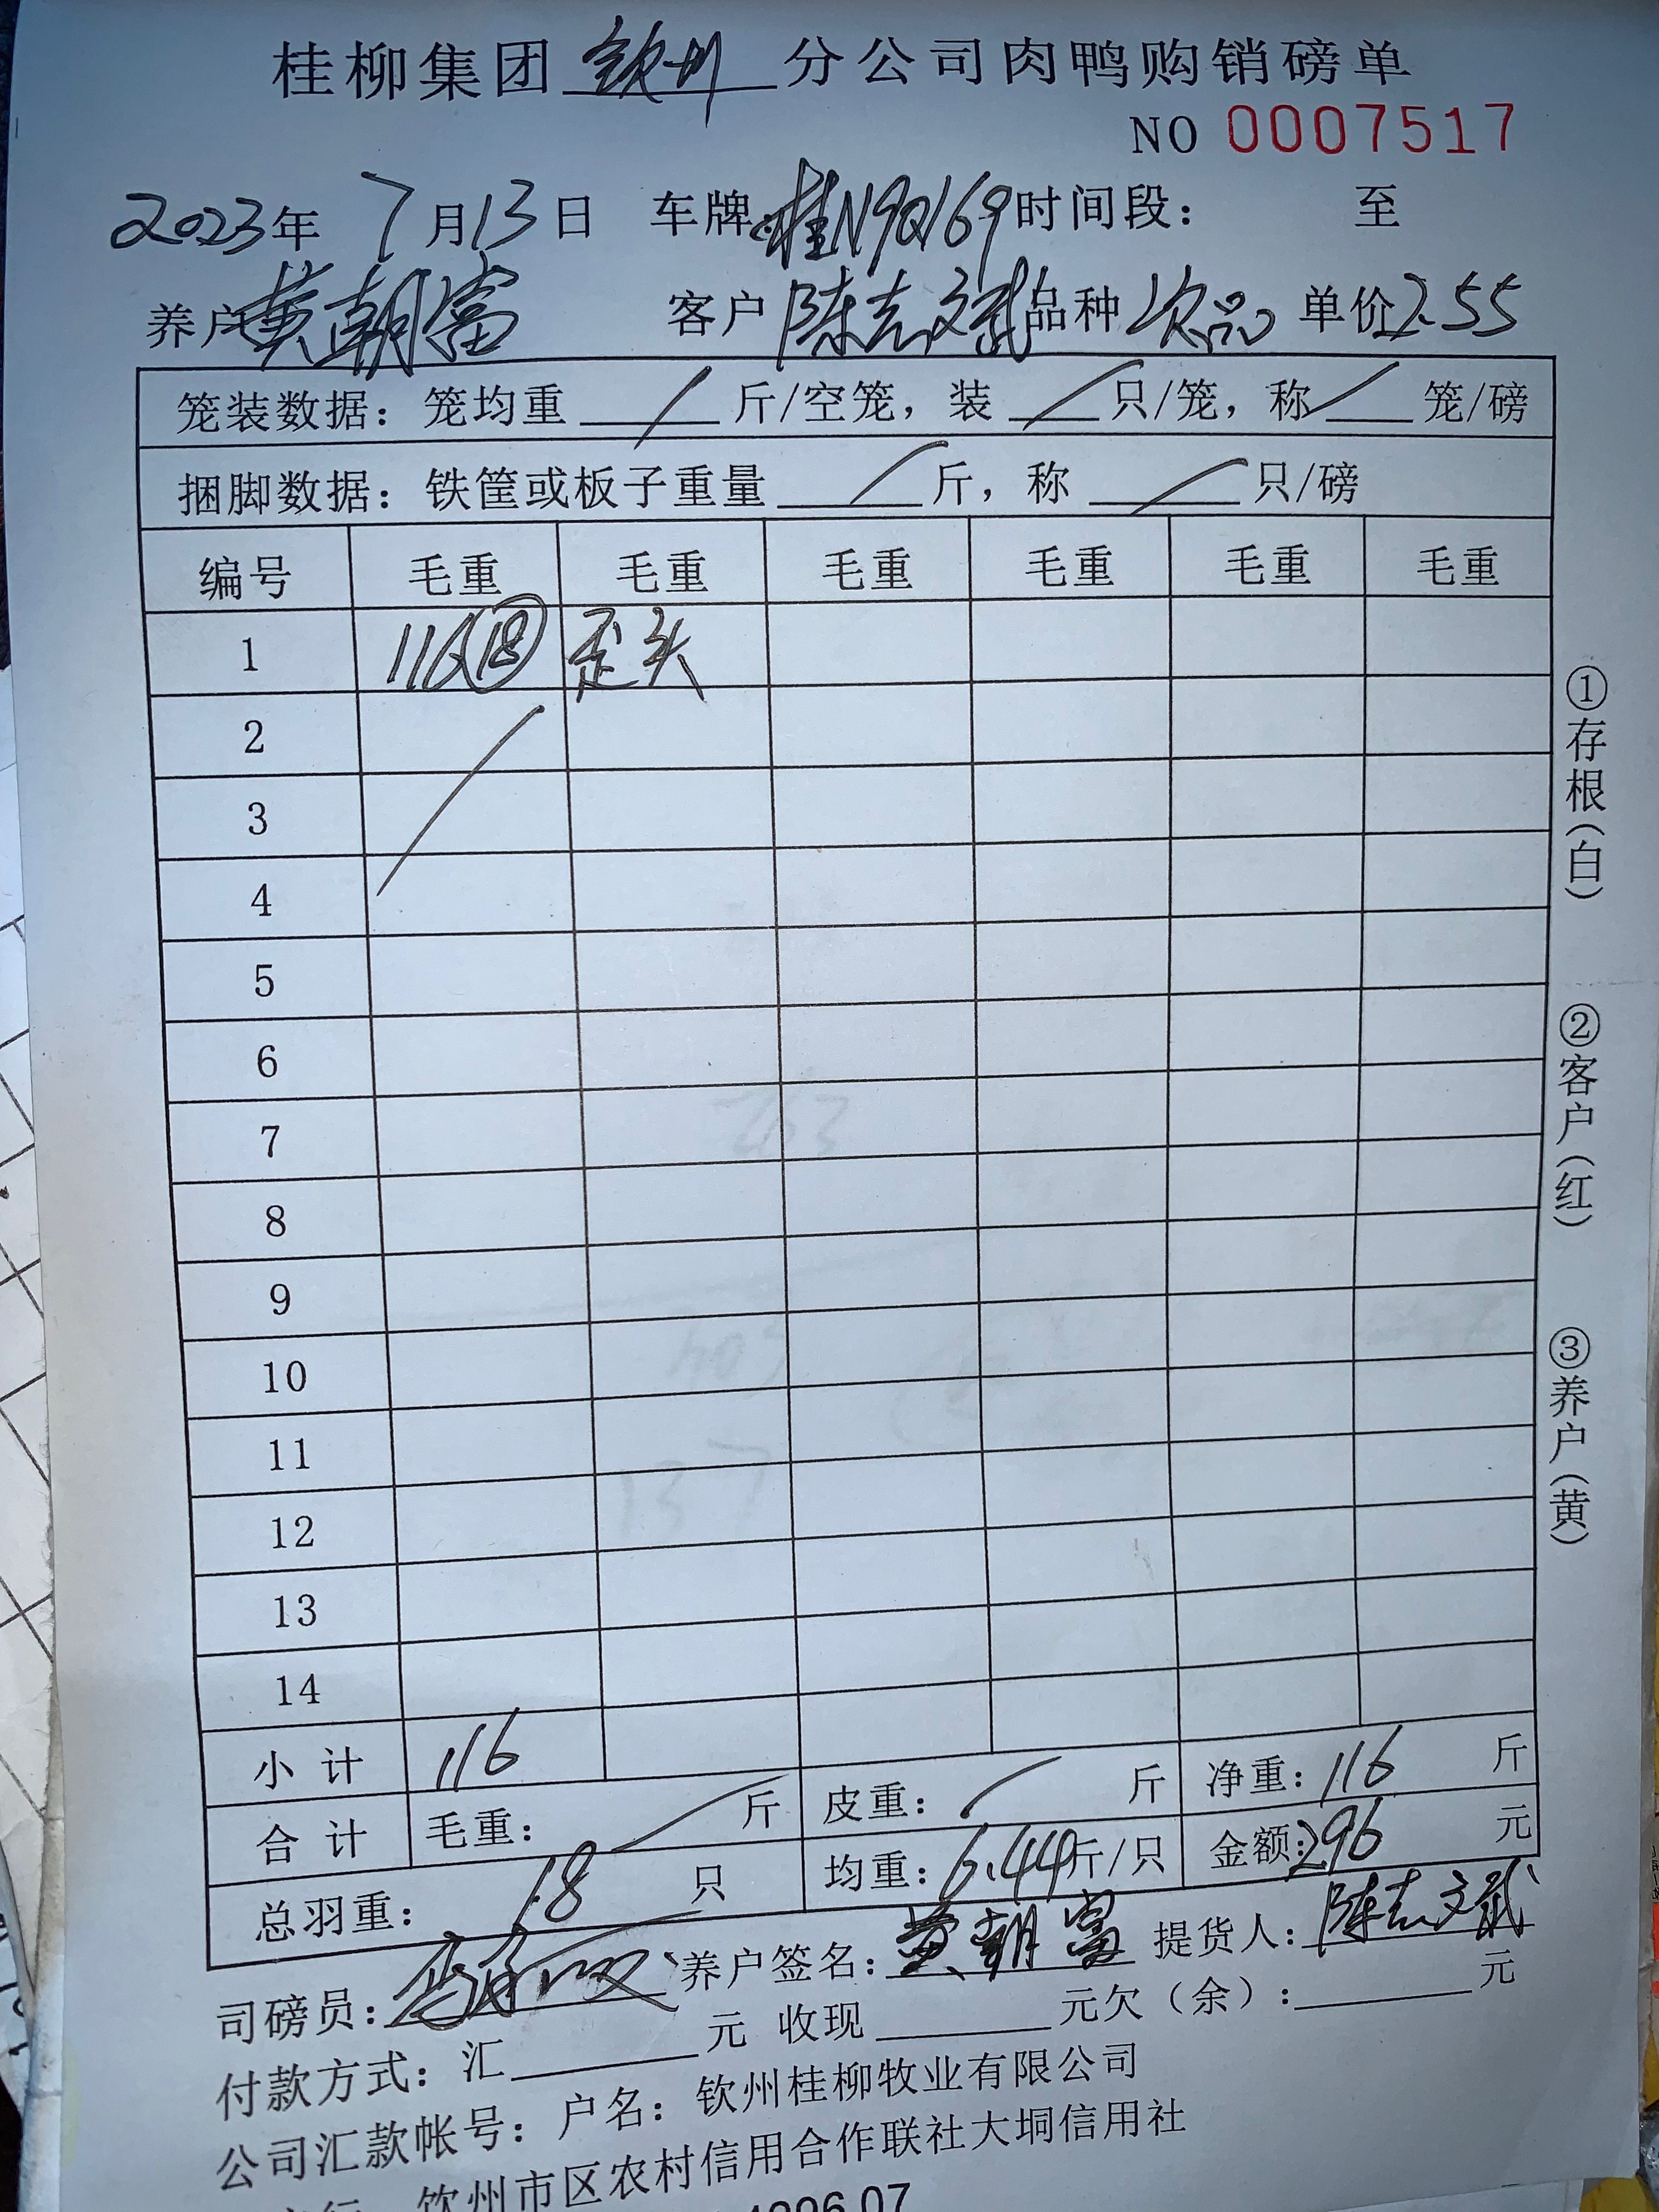 桂柳集团钦州分公司肉鸭购销磅单
NO 0007517
2023年 7月13日 车牌:桂N9Q169 时间段: 至
养户 黄朝富 客户 陈志文武 品种 次品 单价 2.55
笼装数据: 笼均重 / 斤/空笼, 装 / 只/笼, 称 / 笼/磅
捆脚数据: 铁筐或板子重量 / 斤, 称 / 只/磅
编号 毛重 毛重 毛重 毛重 毛重 毛重
1 116 ⑱ 歪头
2
3
4
5
6
7
8
9
10
11
12
13
14
小计 116
合计 毛重: / 斤 皮重: / 斤 净重: 116 斤
总羽重: 18 只 均重: 6.44斤/只 金额: 296 元
司磅员: 养户签名: 黄朝富 提货人: 陈志文武
付款方式: 汇 元 收现 元欠(余): 元
公司汇款帐号: 户名: 钦州桂柳牧业有限公司
钦州市区农村信用合作联社大垌信用社
①存根(白)
②客户(红)
③养户(黄)